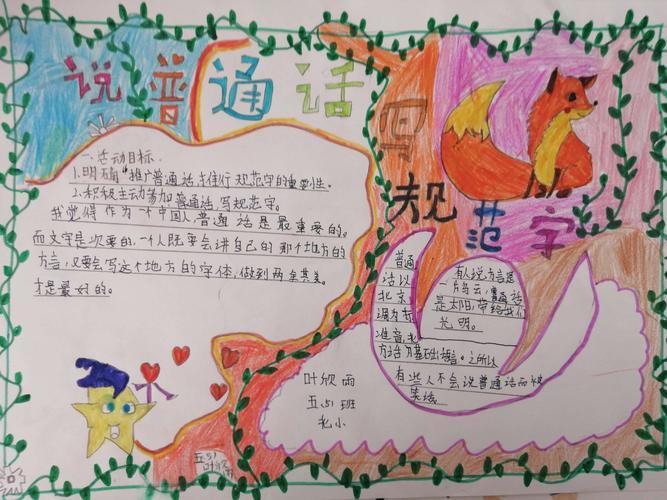 说普通话
写
规范字
一、活动目标
1.明确“推广普通话,推行规范字的重要性。
2.积极主动参加普通话,写规范字。
我觉得作为一个中国人,普通话是最重要的。
而文字是次要的,一个人既要会讲自己的那个地方的
方言,又要会写这个地方的字体,做到两全其美。
才是最好的。
普通
话以
北京
调为标
准音,北
方话为基础语言。之所以
有些人不会说普通话而使
有人说方言是
一片乌云,普通话
是太阳,带给我们
光明。
叶欣雨
五(5)班
北小